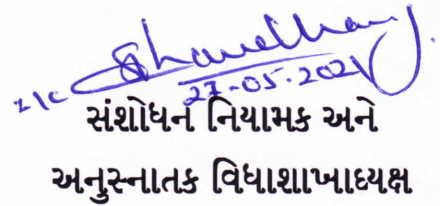 I/c
27-05-2021
સંશોધન નિયામક અને
અનુસ્નાતક વિધાશાખાધ્યક્ષ